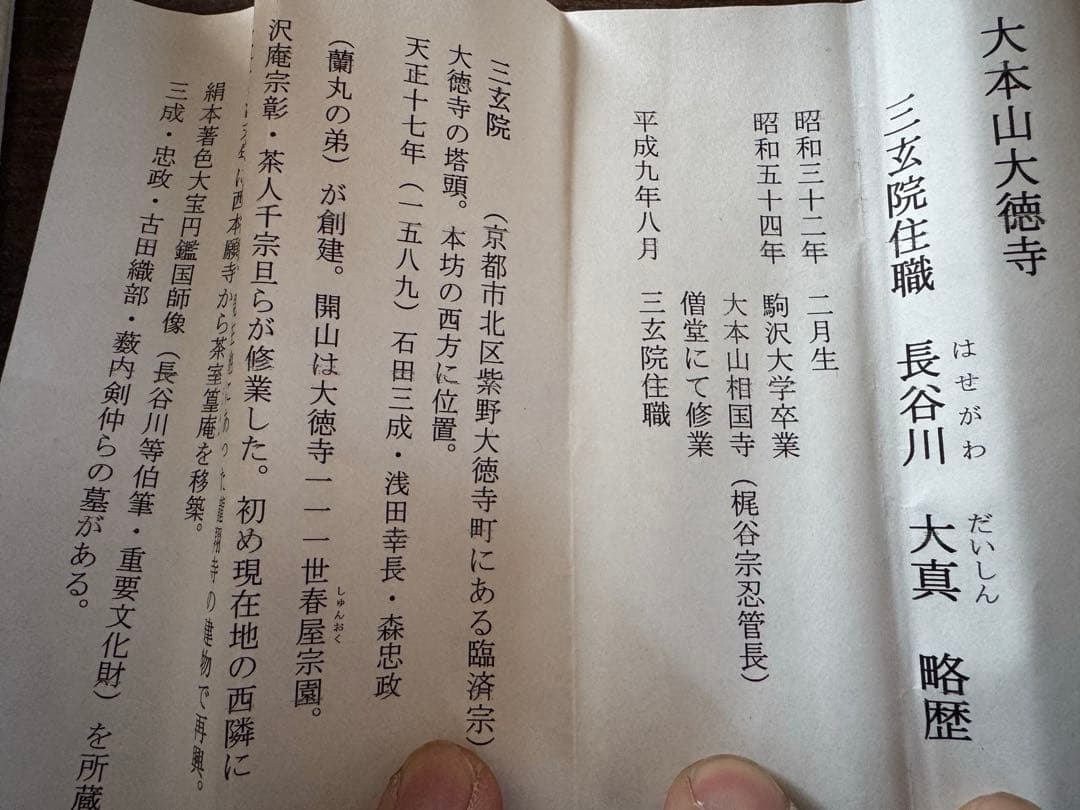 大本山大徳寺
三玄院住職　長谷川　大真　略歴
はせがわ　だいしん
昭和三十二年　二月生
昭和五十四年　駒沢大学卒業
大本山相国寺（梶谷宗忍管長）
僧堂にて修業
平成九年八月　三玄院住職
三玄院　（京都市北区紫野大徳寺町にある臨済宗）
大徳寺の塔頭。本坊の西方に位置。
天正十七年（一五八九）石田三成・浅田幸長・森忠政
（蘭丸の弟）が創建。開山は大徳寺一一一世春屋宗園。
しゅんおく
沢庵宗彰・茶人千宗旦らが修業した。初め現在地の西隣に
の建物で再興。
西本願寺から茶室篁庵を移築。
絹本著色大宝円鑑国師像（長谷川等伯筆・重要文化財）を所蔵
三成・忠政・古田織部・薮内剣仲らの墓がある。